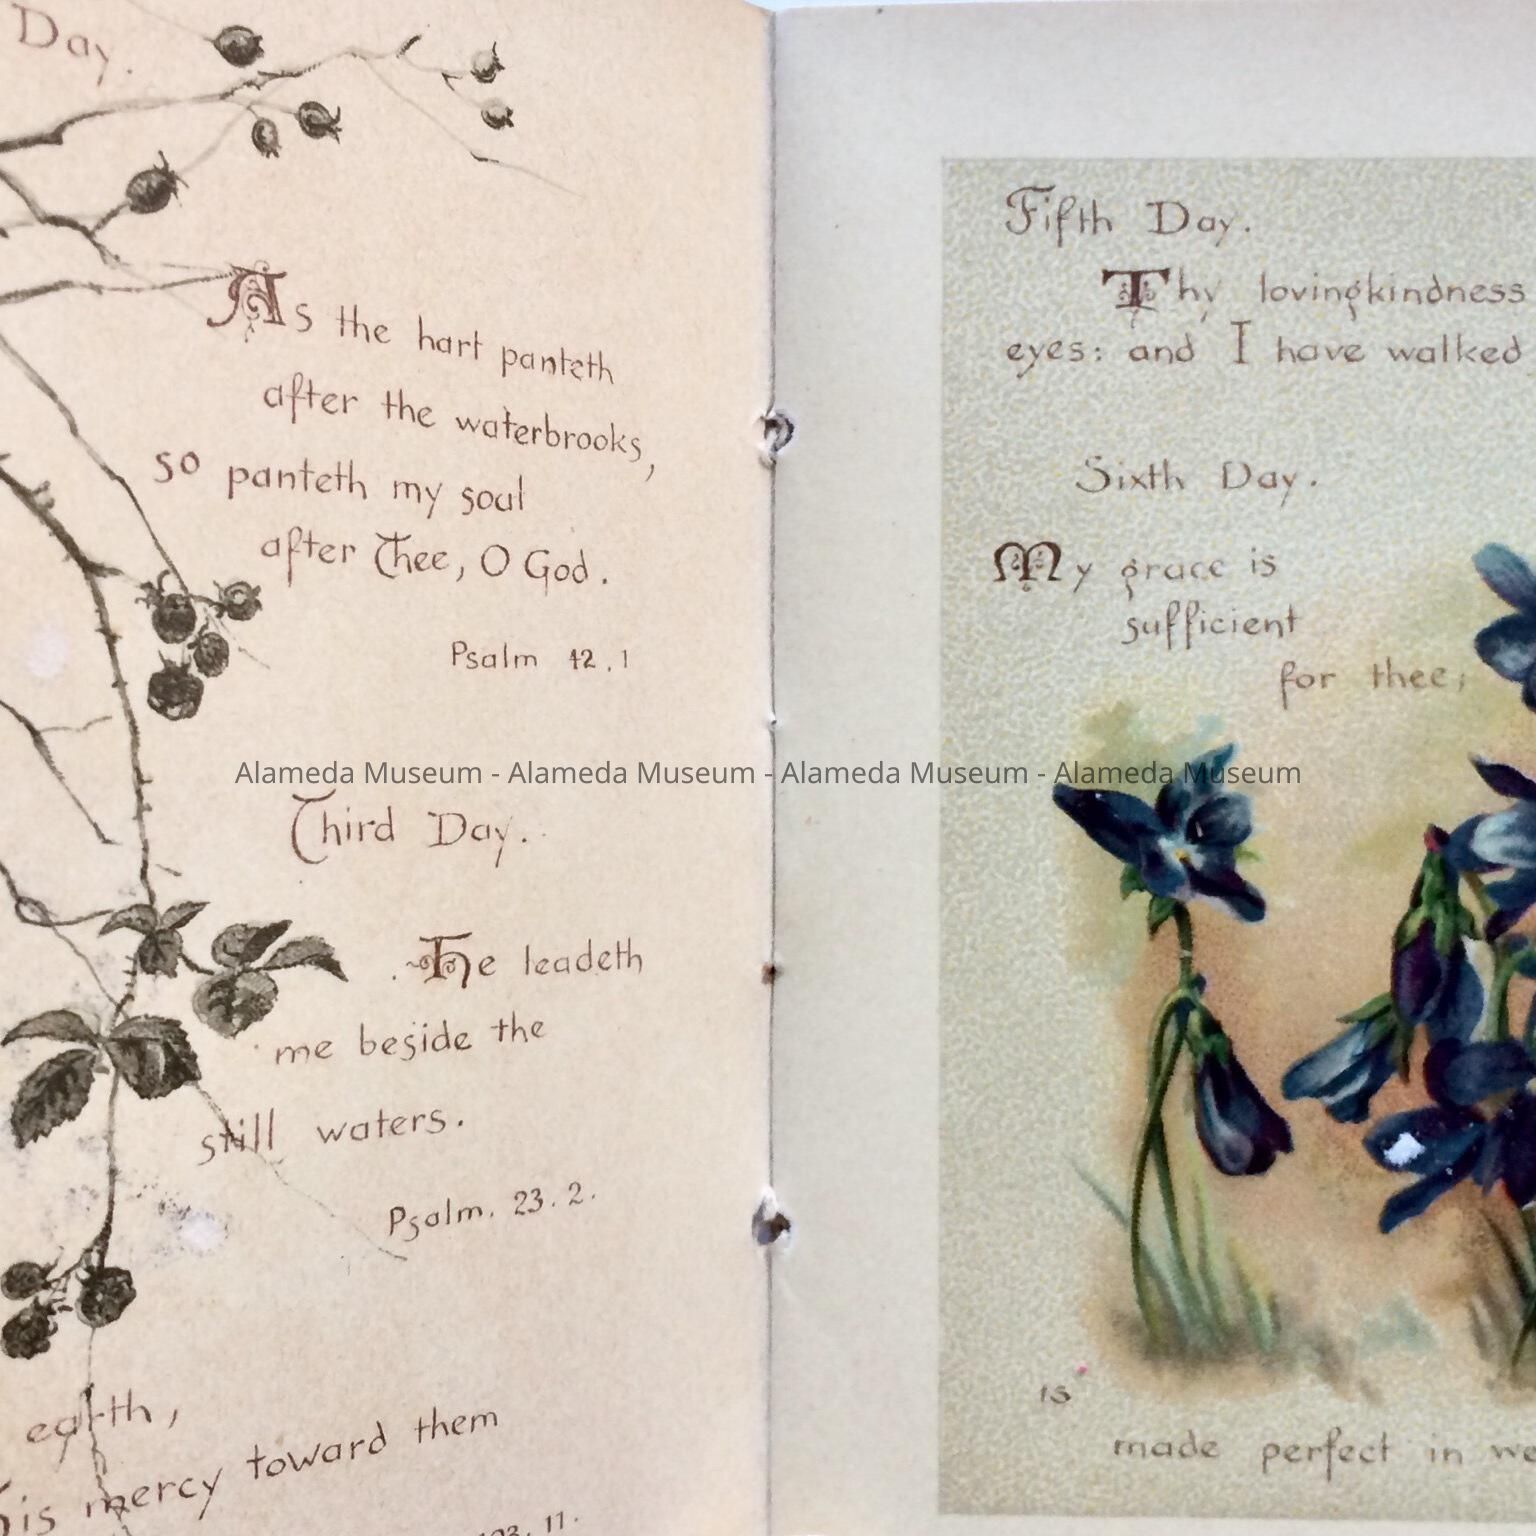 Day.
As the hart panteth
after the waterbrooks,
so panteth my soul
after Thee, O God.
Psalm 42.1
Alameda Museum - Alameda Museum - Alameda Museum - Alameda Museum
Third Day.
He leadeth
me beside the
still waters.
Psalm. 23. 2.
earth,
his mercy toward them
103. 11.
Fifth Day.
Thy lovingkindness
eyes: and I have walked
Sixth Day.
My grace is
sufficient
for thee;
is
made perfect in we